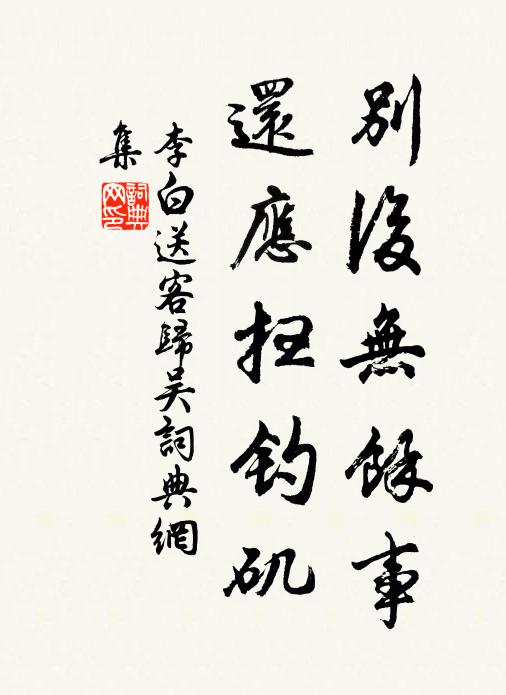 別後無餘事
還應掃釣矶
李白送客歸吴詞典網
集
詞典网印